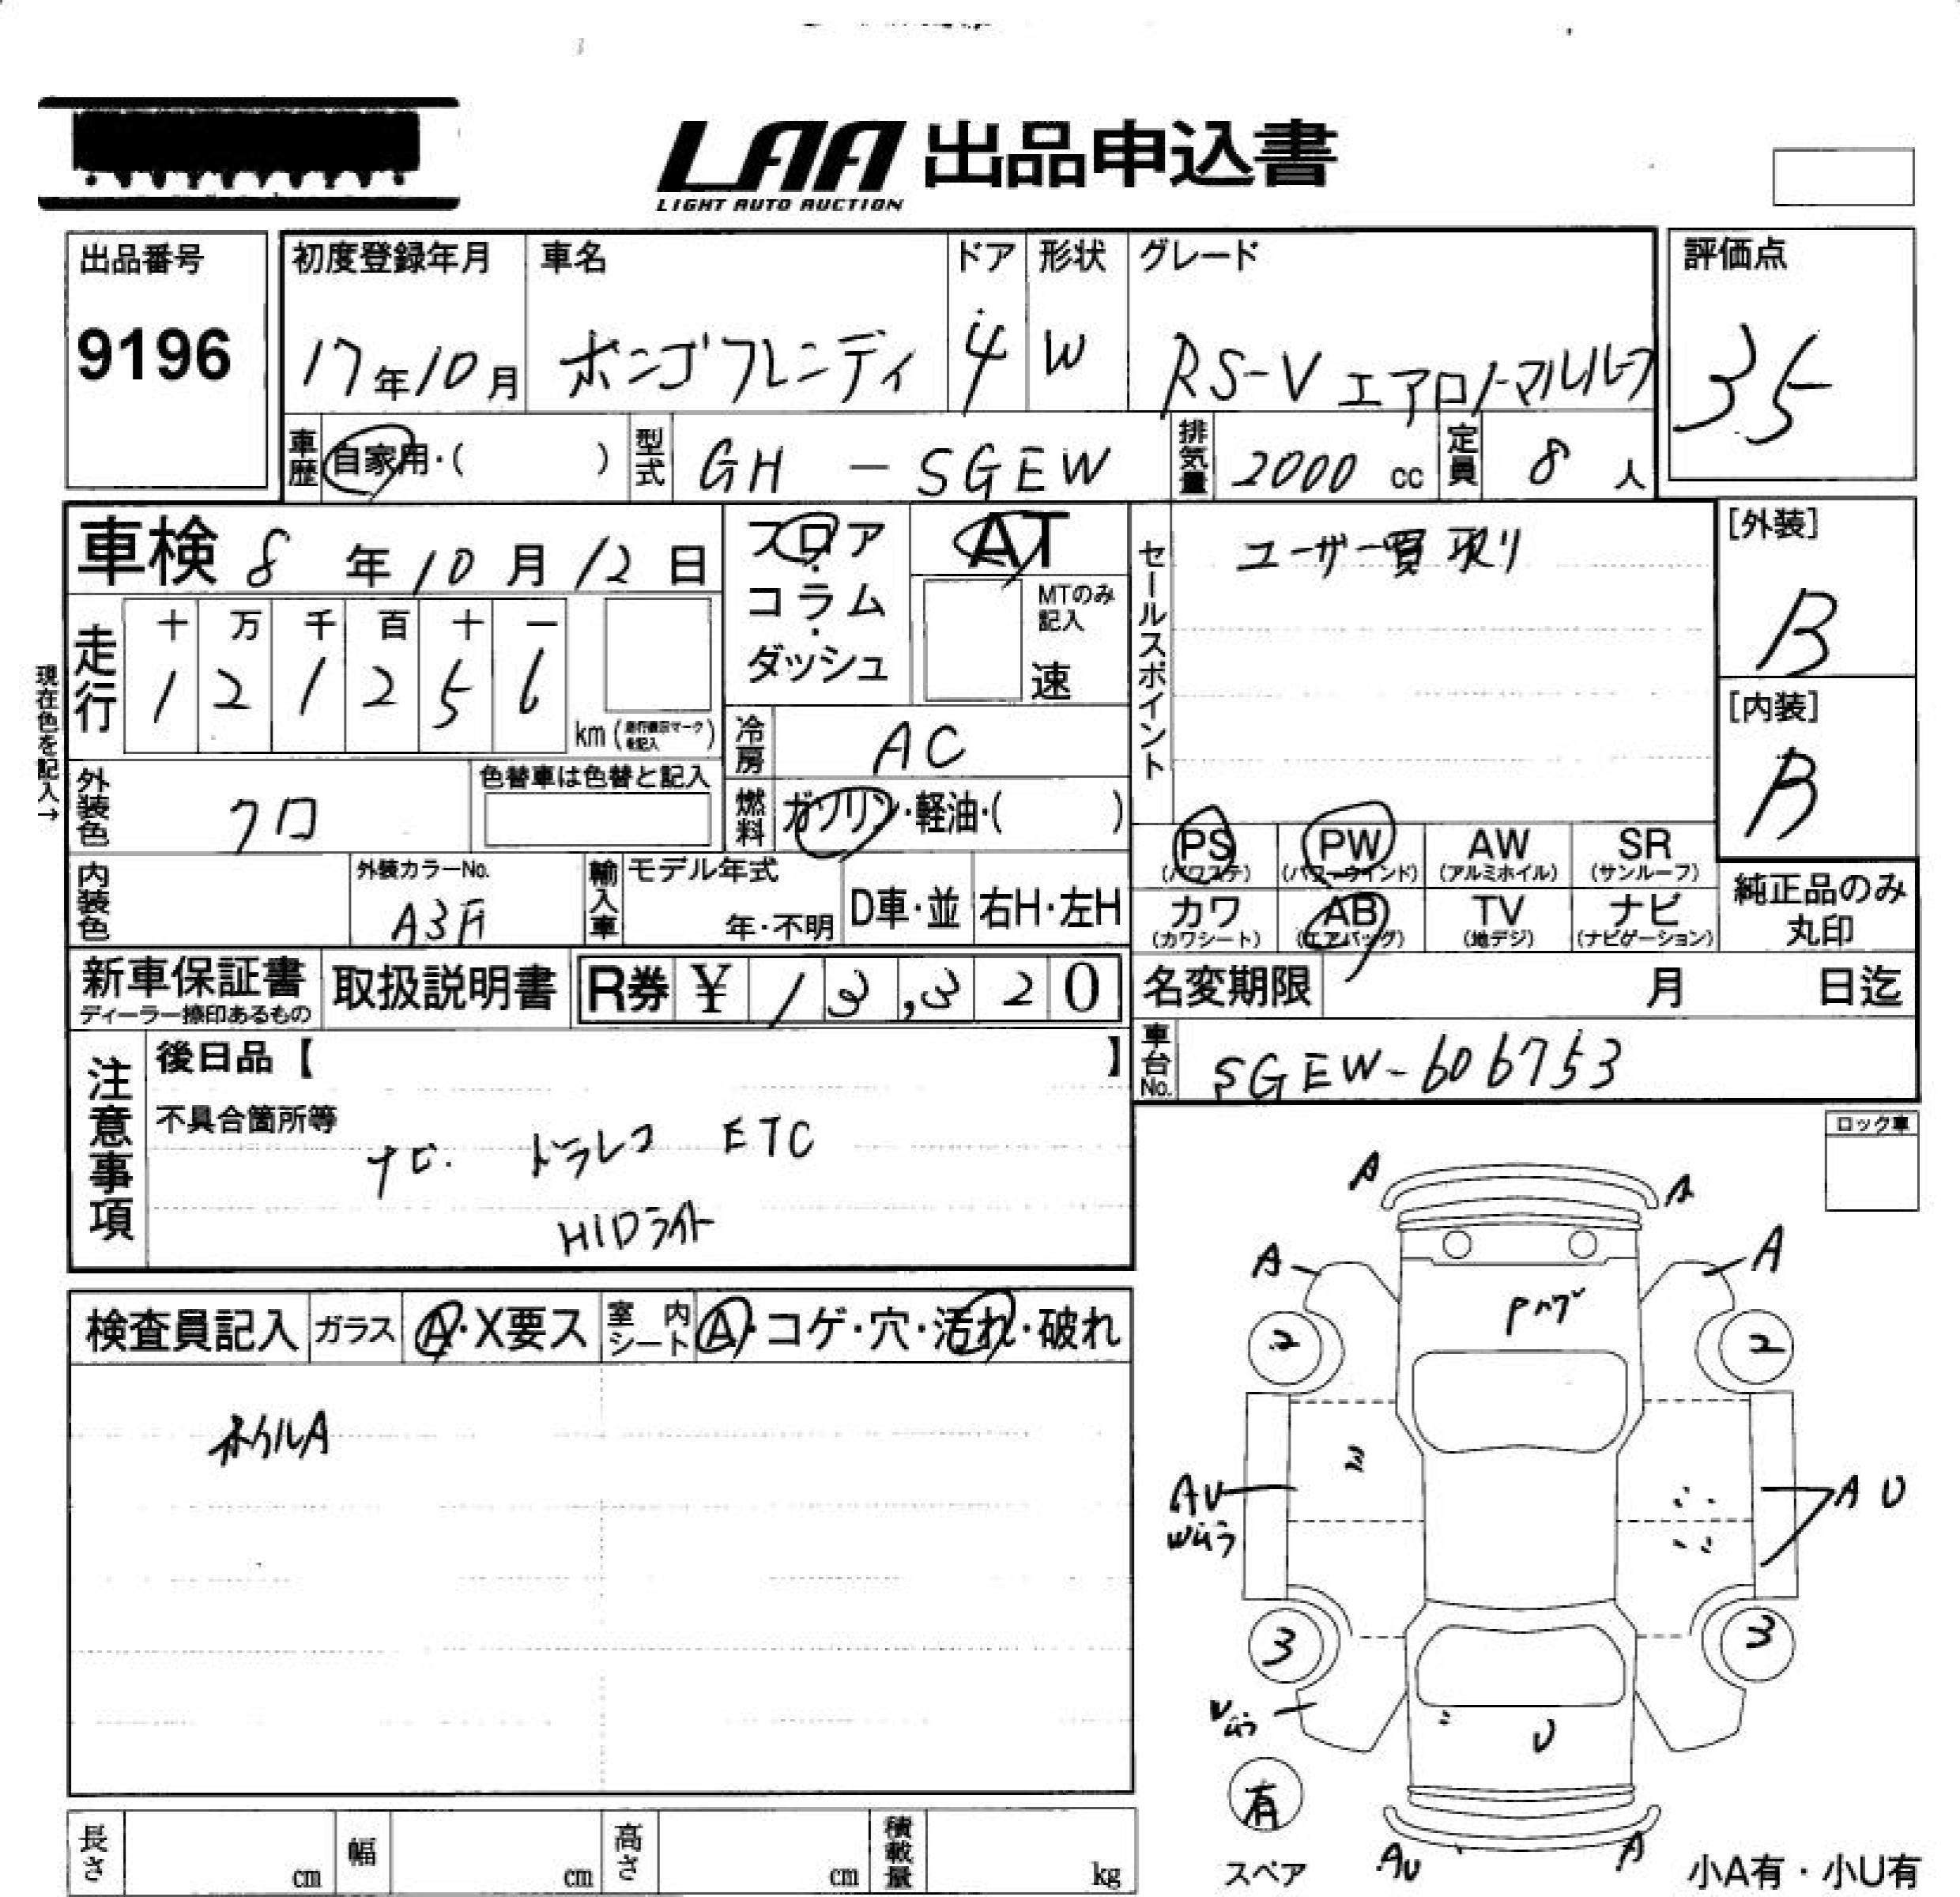 LAA 出品申込書
LIGHT AUTO AUCTION
出品番号
9196
初度登録年月
17年10月
車名
ボンゴフレンディ
ドア
4
形状
W
グレード
RS-V エアロノーマルルーフ
評価点
35
車歴
自家用・( )
型式
GH - SGEW
排気量
2000 cc
定員
8 人
車検 8 年 10 月 12 日
フロア・コラム・ダッシュ
AT
MTのみ記入
速
セールスポイント
ユーザー買取り
[外装]
B
[内装]
B
現在色を記入→
走行
十 万 千 百 十 一
1 2 1 2 5 6
km (走行機関マークを記入)
冷房
AC
外装色
クロ
色替車は色替と記入
燃料
ガソリン・軽油・( )
内装色
外装カラーNo.
A3F
輸入車
モデル年式
年・不明
D車・並
右H・左H
PS (パワステ)
PW (パワーウインド)
AW (アルミホイル)
SR (サンルーフ)
カワ (カワシート)
AB (エアバッグ)
TV (地デジ)
ナビ (ナビゲーション)
純正品のみ丸印
新車保証書
ディーラー捺印あるもの
取扱説明書
R券 ¥ 13,320
名変期限 月 日迄
車台No.
SGEW-606753
注意事項
後日品【 】
不具合箇所等
ナビ. ドラレコ ETC
HIDライト
ロック車
検査員記入
ガラス
A・X要ス
室内シート
A・コゲ・穴・汚れ・破れ
ホイルA
A
A
A
A
Pハゲ
2
2
AU
Wむう
AU
3
3
U
有
スペア
AU
A
小A有・小U有
長さ cm
幅 cm
高さ cm
積載量 kg